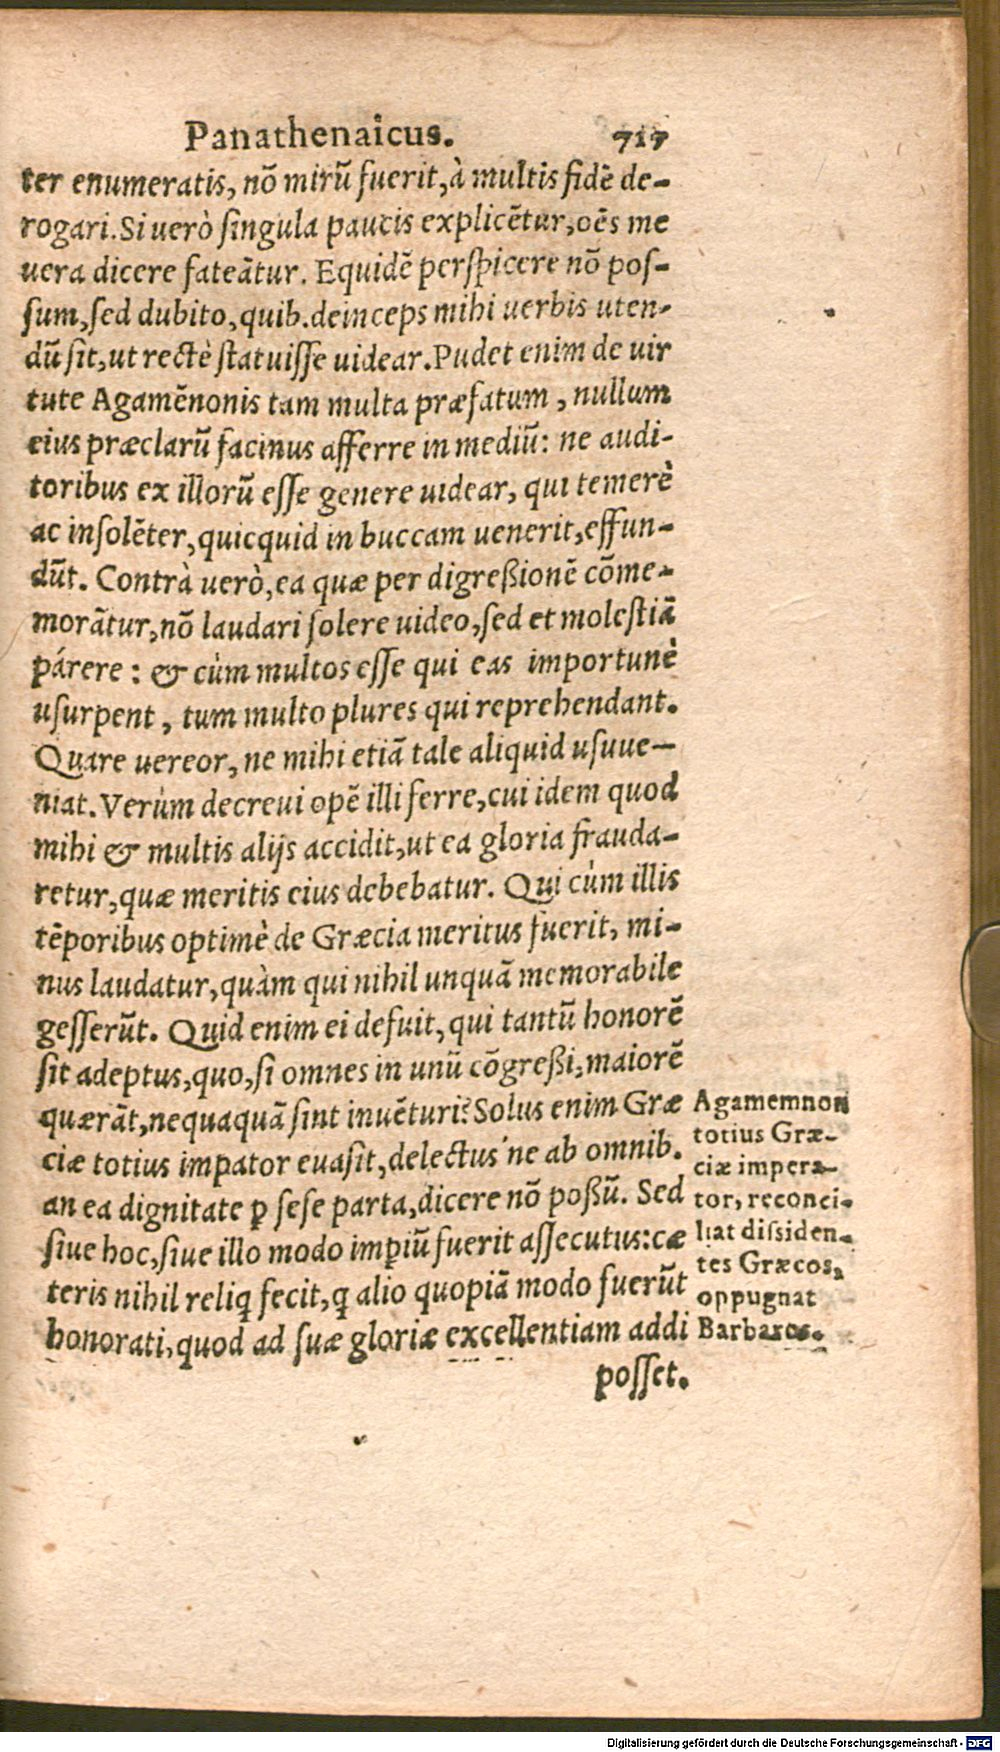 Panathenaicus. 717
ter enumeratis, nō mirū fuerit, à multis fidē de-
rogari. Si uerò singula paucis explicētur, oēs me
uera dicere fateātur. Equidē perspicere nō pos-
sum, sed dubito, quib. deinceps mihi uerbis uten-
dū sit, ut rectè statuisse uidear. Pudet enim de uir
tute Agamēnonis tam multa præfatum, nullum
eius præclarū facinus afferre in mediū: ne audi-
toribus ex illorū esse genere uidear, qui temerè
ac insolēter, quicquid in buccam uenerit, effun-
dūt. Contrà uerò, ea quæ per digreßionē cōme-
morātur, nō laudari solere uideo, sed et molestiā
párere: & cùm multos esse qui eas importunè
usurpent, tum multo plures qui reprehendant.
Quare uereor, ne mihi etiā tale aliquid usuue-
niat. Verùm decreui opē illi ferre, cui idem quod
mihi & multis alijs accidit, ut ea gloria frauda-
retur, quæ meritis eius debebatur. Qui cùm illis
tēporibus optimè de Græcia meritus fuerit, mi-
nus laudatur, quàm qui nihil unquā memorabile
gesserūt. Quid enim ei defuit, qui tantū honorē
sit adeptus, quo, si omnes in unū cōgreßi, maiorē
quærāt, nequaquā sint inuēturi? Solus enim Græ
ciæ totius impator euasit, delectus'ne ab omnib.
an ea dignitate ꝑ sese parta, dicere nō poßū. Sed
siue hoc, siue illo modo imꝑiū fuerit assecutus: cæ
teris nihil reliq fecit, q alio quopiā modo fuerūt
honorati, quod ad suæ gloriæ excellentiam addi
posset.
Agamemnon
totius Græ-
ciæ impera-
tor, reconci-
liat dissiden-
tes Græcos,
oppugnat
Barbaros.
Digitalisierung gefördert durch die Deutsche Forschungsgemeinschaft - DFG